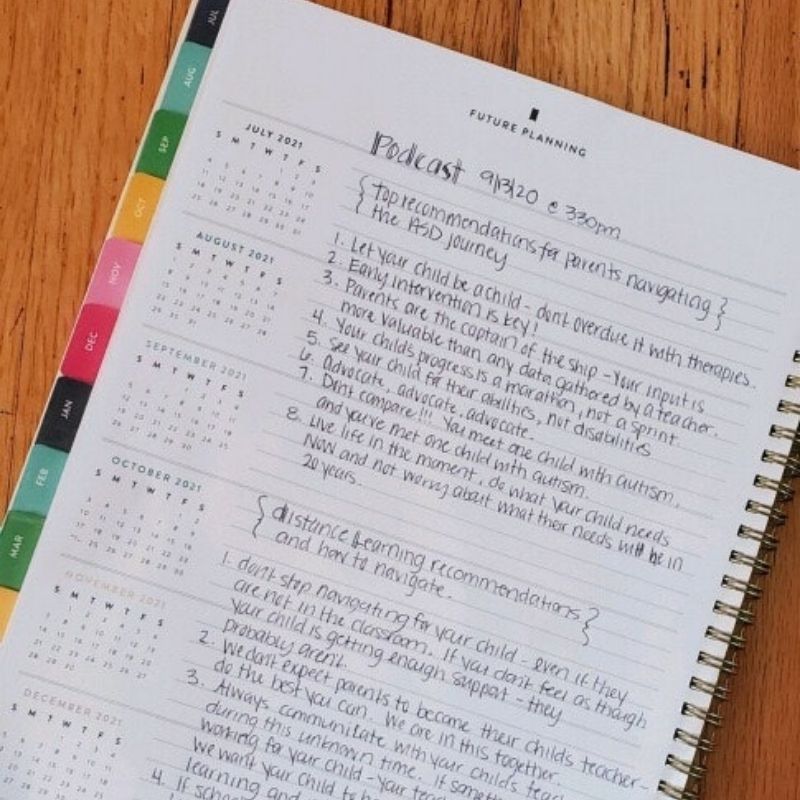 JUL
AUG
SEP
OCT
NOV
DEC
JAN
FEB
MAR
FUTURE PLANNING
JULY 2021
S M T W T F S
AUGUST 2021
S M T W T F S
SEPTEMBER 2021
S M T W T F S
OCTOBER 2021
S M T W T F S
NOVEMBER 2021
S M T W T F S
DECEMBER 2021
S M T W T F S
Podcast 9/13/20 @ 330pm
{ top recommendations for parents navigating }
the ASD journey
1. Let your child be a child - dont overdue it with therapies.
2. Early intervention is key!
3. Parents are the captain of the ship - your input is
more valuable than any data gathered by a teacher.
4. Your childs progress is a marathon, not a sprint.
5. See your child for their abilities, not disabilities
6. Advocate, advocate, advocate.
7. Dont compare!!! You meet one child with autism,
and you've met one child with autism.
8. Live life in the moment, do what your child needs
now and not worry about what their needs will be in
20 years.
{ distance learning recommendations }
and how to navigate.
1. dont stop navigating for your child - even if they
are not in the classroom. If you dont feel as though
your child is getting enough support - they
probably arent.
2. We dont expect parents to become their childs teacher -
do the best you can. We are in this together.
3. Always communicate with your childs
during this unknown time. If
working for your child - your
We want your child to
learning and
4. If